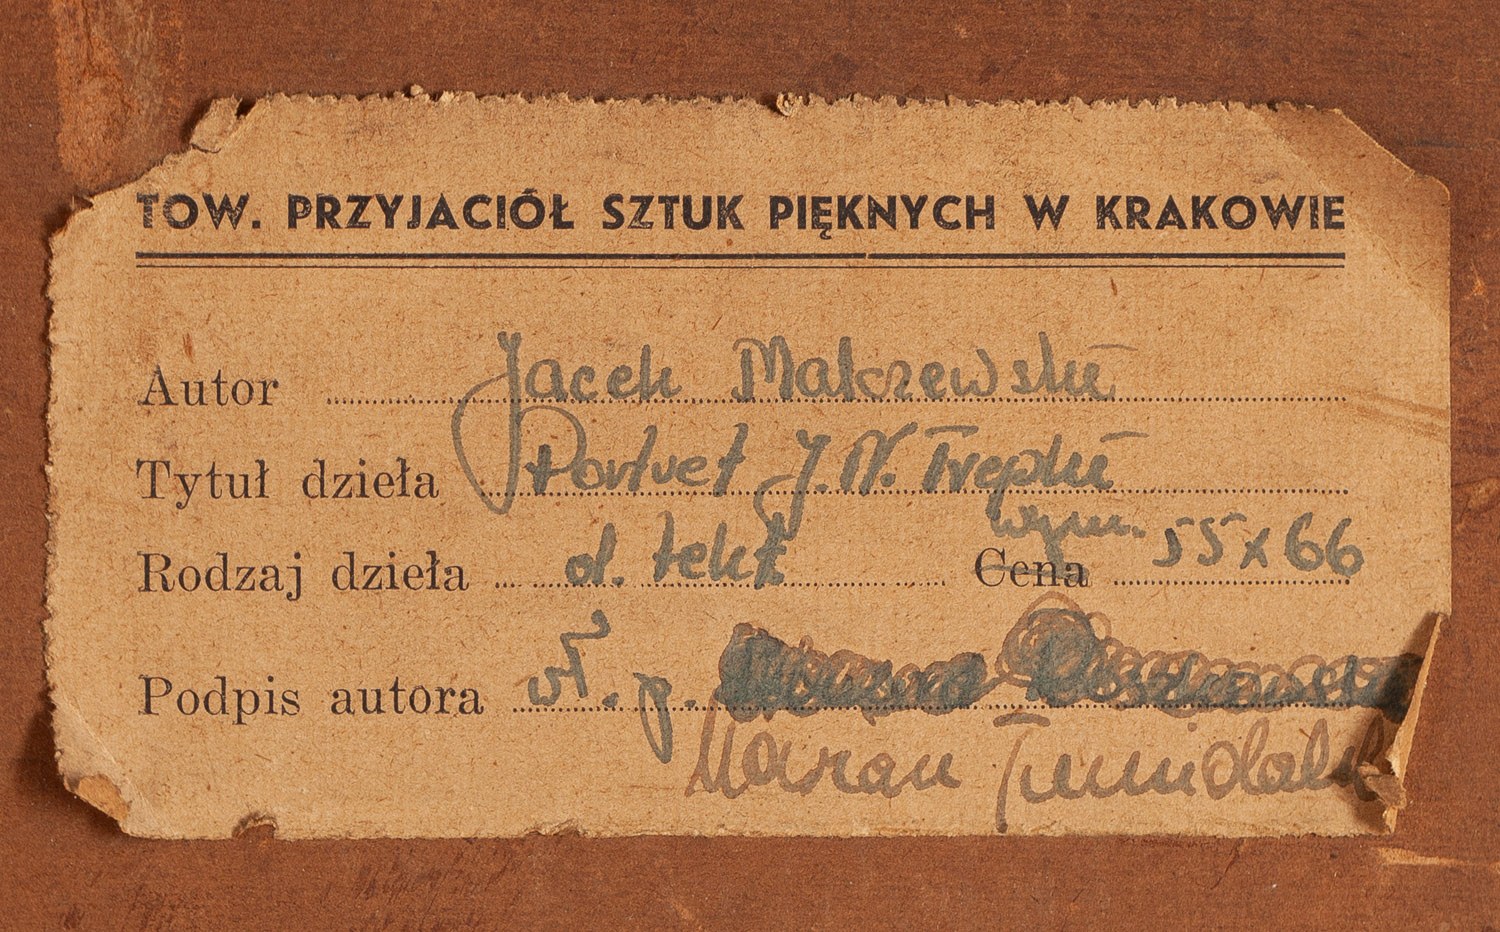 TOW. PRZYJACIÓŁ SZTUK PIĘKNYCH W KRAKOWIE
Autor Jacek Malczewski
Tytuł dzieła Portret J. N. Trepki
wym.
Rodzaj dzieła ol. tekt Cena 55 x 66
Podpis autora wł. p.
Marian